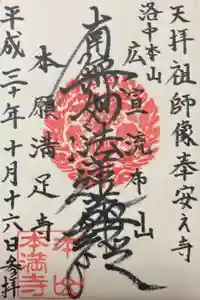 天拝祖師像奉安之寺
洛中本山
広宣流布山
南無妙法蓮華経
本願満足寺
平成二十年十月十六日参拝
本山
本満寺